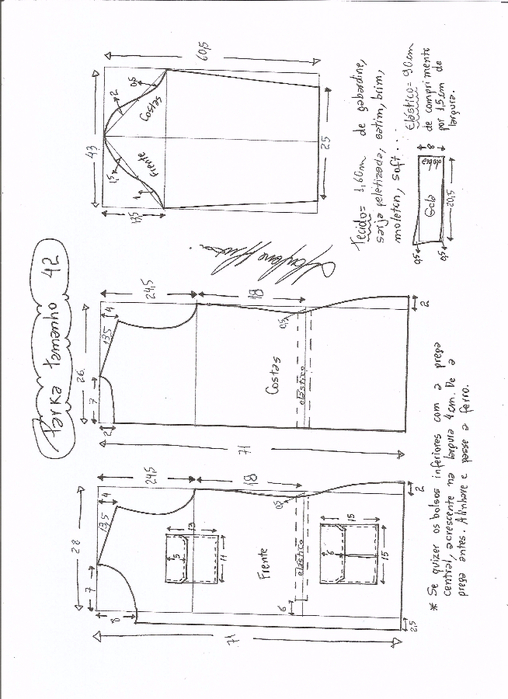 Parka tamanho 42
28
7
8
13,5
4
24,5
18
71
13
5
11
Frente
0,5
elástico
6
15
6
15
2,5
2
26
7
2
13,5
4
24,5
18
71
Costas
0,5
elástico
2
43
60,5
13,5
1,5
1
2
0,5
Frente
Costas
25
Tecido = 1,60m de gabardine,
sarja peletizada, cetim, brim,
moleton, soft...
Elástico = 90cm
de comprimento
por 1,5cm de
largura.
Gola
dobra
8
20,5
0,5
0,5
* Se quizer os bolsos inferiores com a prega
central, acrescente na largura 4cm. De a
prega antes. Alinhave e passe a ferro.